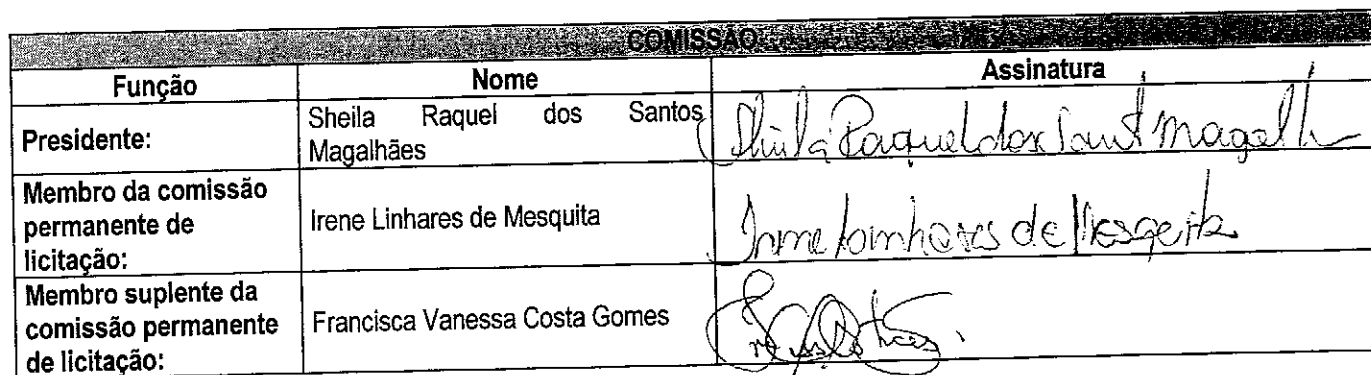 COMISSÃO
Função Nome Assinatura
Presidente: Sheila Raquel dos Santos
Magalhães
Sheila Raquel dos Sant Magalh
Membro da comissão
permanente de
licitação:
Irene Linhares de Mesquita
Irene Linhares de Mesquita
Membro suplente da
comissão permanente
de licitação:
Francisca Vanessa Costa Gomes